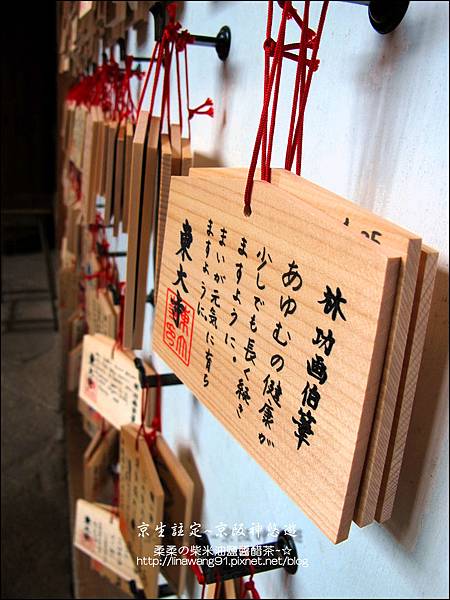 林功画伯筆
あゆむの健康が
少しでも長く続き
ますように。
まいが元気に育ち
ますように。
東大寺
京生註定~京阪神悠遊
柔柔の柴米油鹽醬醋茶-☆
http://linawang91.pixnet.net/blog